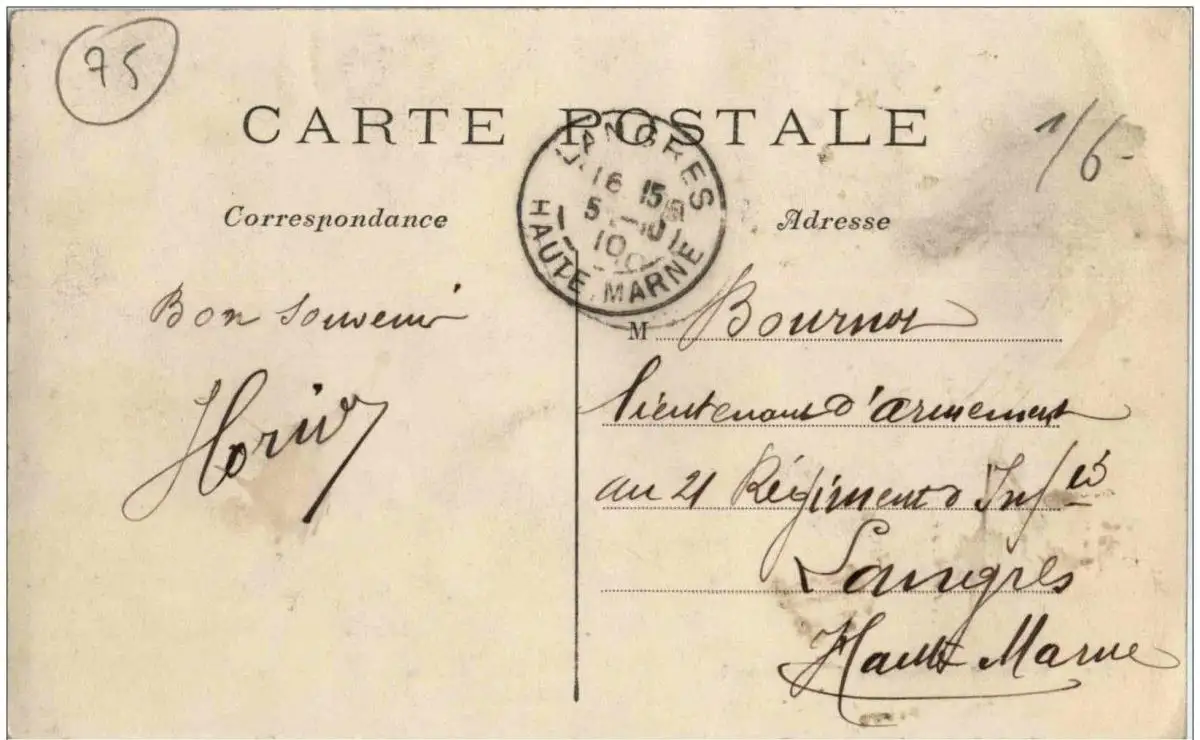 75
CARTE POSTALE
1/6-
LANGRES
16 15
5 -10
10
HAUTE MARNE
Correspondance
Adresse
Bon Souvenir
M Bournot
lieutenant d'armement
au 21 Régiment d'Inf ie
Langres
Haute Marne